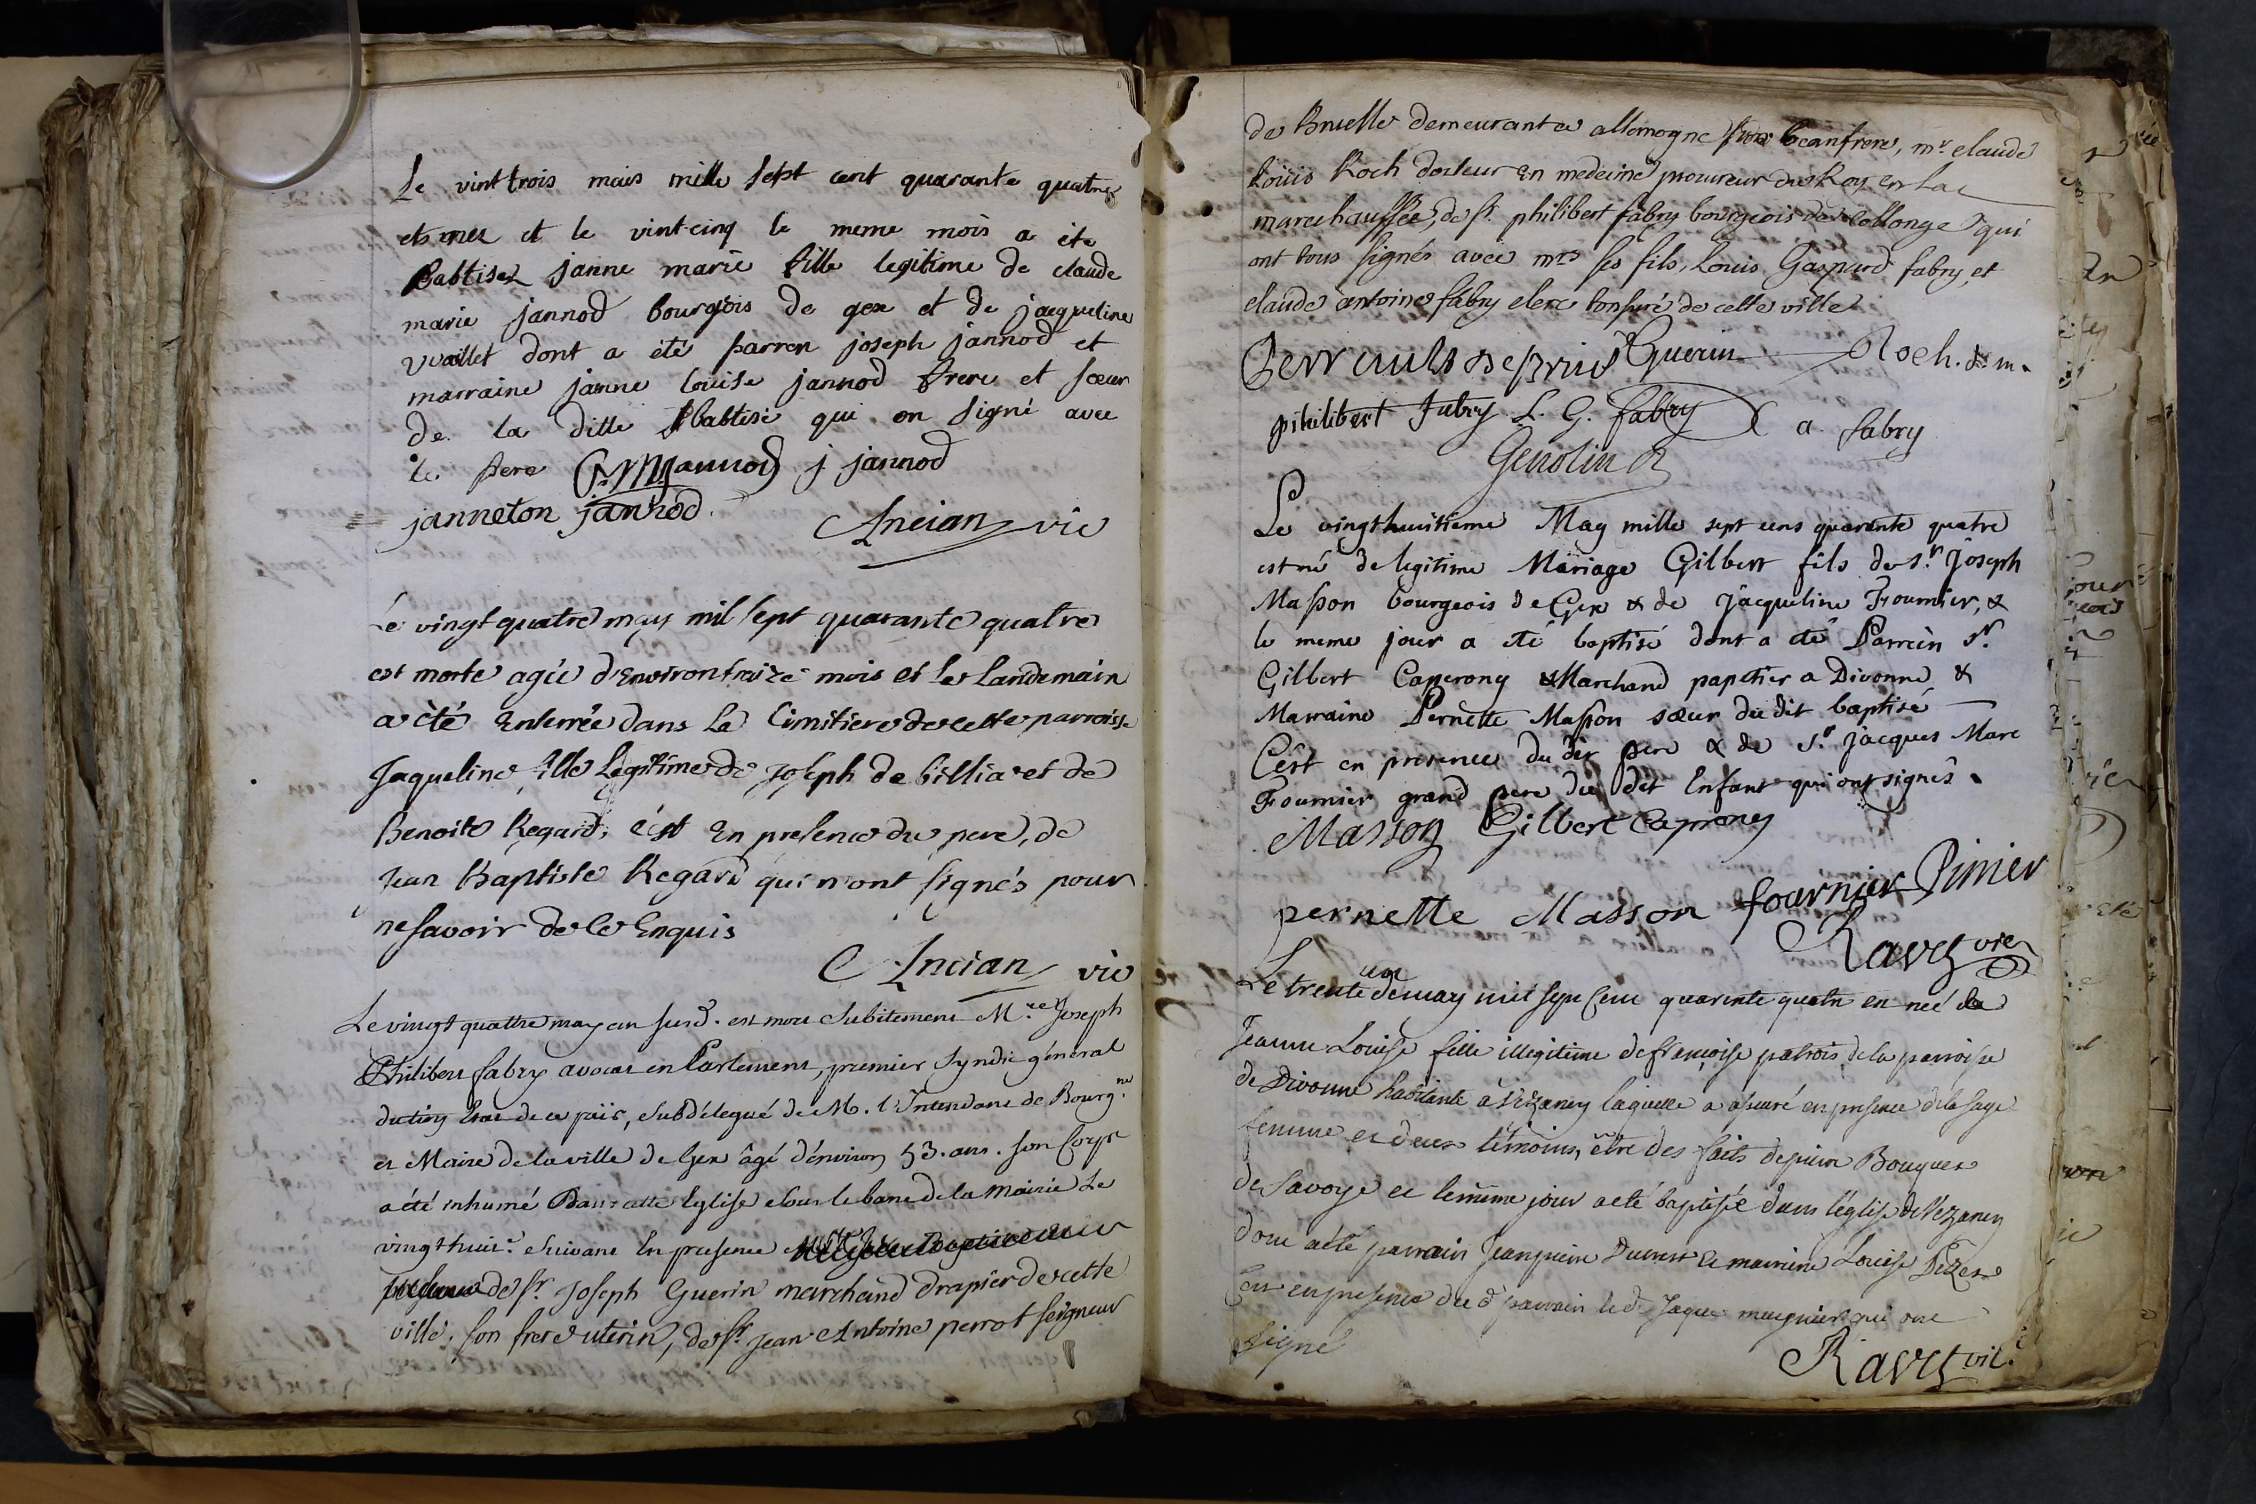 Le vinttrois mais mille sept cent quarante quatre
et nee et le vintcinq le meme mois a ete
Babtisez janne marie fille legitime de claude
marie jannod bourgois de gex et de jacqueline
vuaillet dont a eté parren joseph jannod et
marraine janne louise jannod frere et sœur
de la ditte babtisé qui on signé avec
le pere C M jannod j jannod
janneton jannod
Ancian vic
Le vingt quatre may mil sept quarante quatre
est morte agée d'Environ treize mois et le Landemain
a été Enterrée dans Le Cimitiere de cette parroisse
Jaqueline fille Legitime de Joseph de billia et de
Benoite Regard, c'est En presence du pere, de
Jean Baptiste Regard qui n'ont signés pour
ne savoir de ce Enquis
Ancian vic
Le vingt quattre may an susd. est mort subitement M.re Joseph
Philibert fabry avocat en Parlement, premier syndic général
du tiers Etat de ce païs, subdélegué de M. l'Intendant de Bourg.ne
et Maire de la ville de Gex âgé d'énviron 53. ans. son Corps
a été inhumé Dans cette Eglise sous le banc de la Mairie Le
vingt huit.e suivant En presence
de Sr. Joseph Guerin marchand drapier de cette
ville, son frere uterin, de Sr. Jean Antoine perrot seigneur
de Bruelle demeurant a allemogne son beaufrere, mr. claude
Louis Roch docteur En medecine procureur du Roy En La
marechaussée, de Sr. philibert fabry bourgeois de collonge qui
ont tous signés avec mrs ses fils, Louis Gaspard fabry, et
claude antoine fabry clerc tonsuré de cette ville
Guerin Roch. d. m.
philibert fabry L. G. fabry C a fabry
Genolin
Le vingthuitieme May mille sept cens quarante quatre
est né de legitime Mariage Gilbert fils de Sr. Joseph
Masson bourgeois de Gex & de Jacqueline Fournier, &
le meme jour a été baptisé dont a été Parrein Sr.
Gilbert Caperony Marchand papetier a Divonne &
Marraine Pernette Masson sœur du dit baptisé
C'est en presence du dit pere & de Sr. Jacques Marc
Fournier grand pere du dit Enfant qui ont signés.
Masson Gilbert Caprony
pernette Masson fournier Pinier
Ravet vic
Le trente une de may mil sept Cent quarante quatre en neé
Jeanne Louise fille illegitime de françoise patrois de la parroisse
de Divonne habitante à Vézancy laquelle a assuré en presence de la sage
femme et deux témoins, etre des faits de pierre Bouquet
de Savoye et le même jour a eté baptisée dans l'église de Vézancy
dont a été parrain Jeanpierre Durest et marreine Louise Dezes
C'est en presence du d. parrain le d. Jaque meugnier qui ont
signé
Ravet vic.